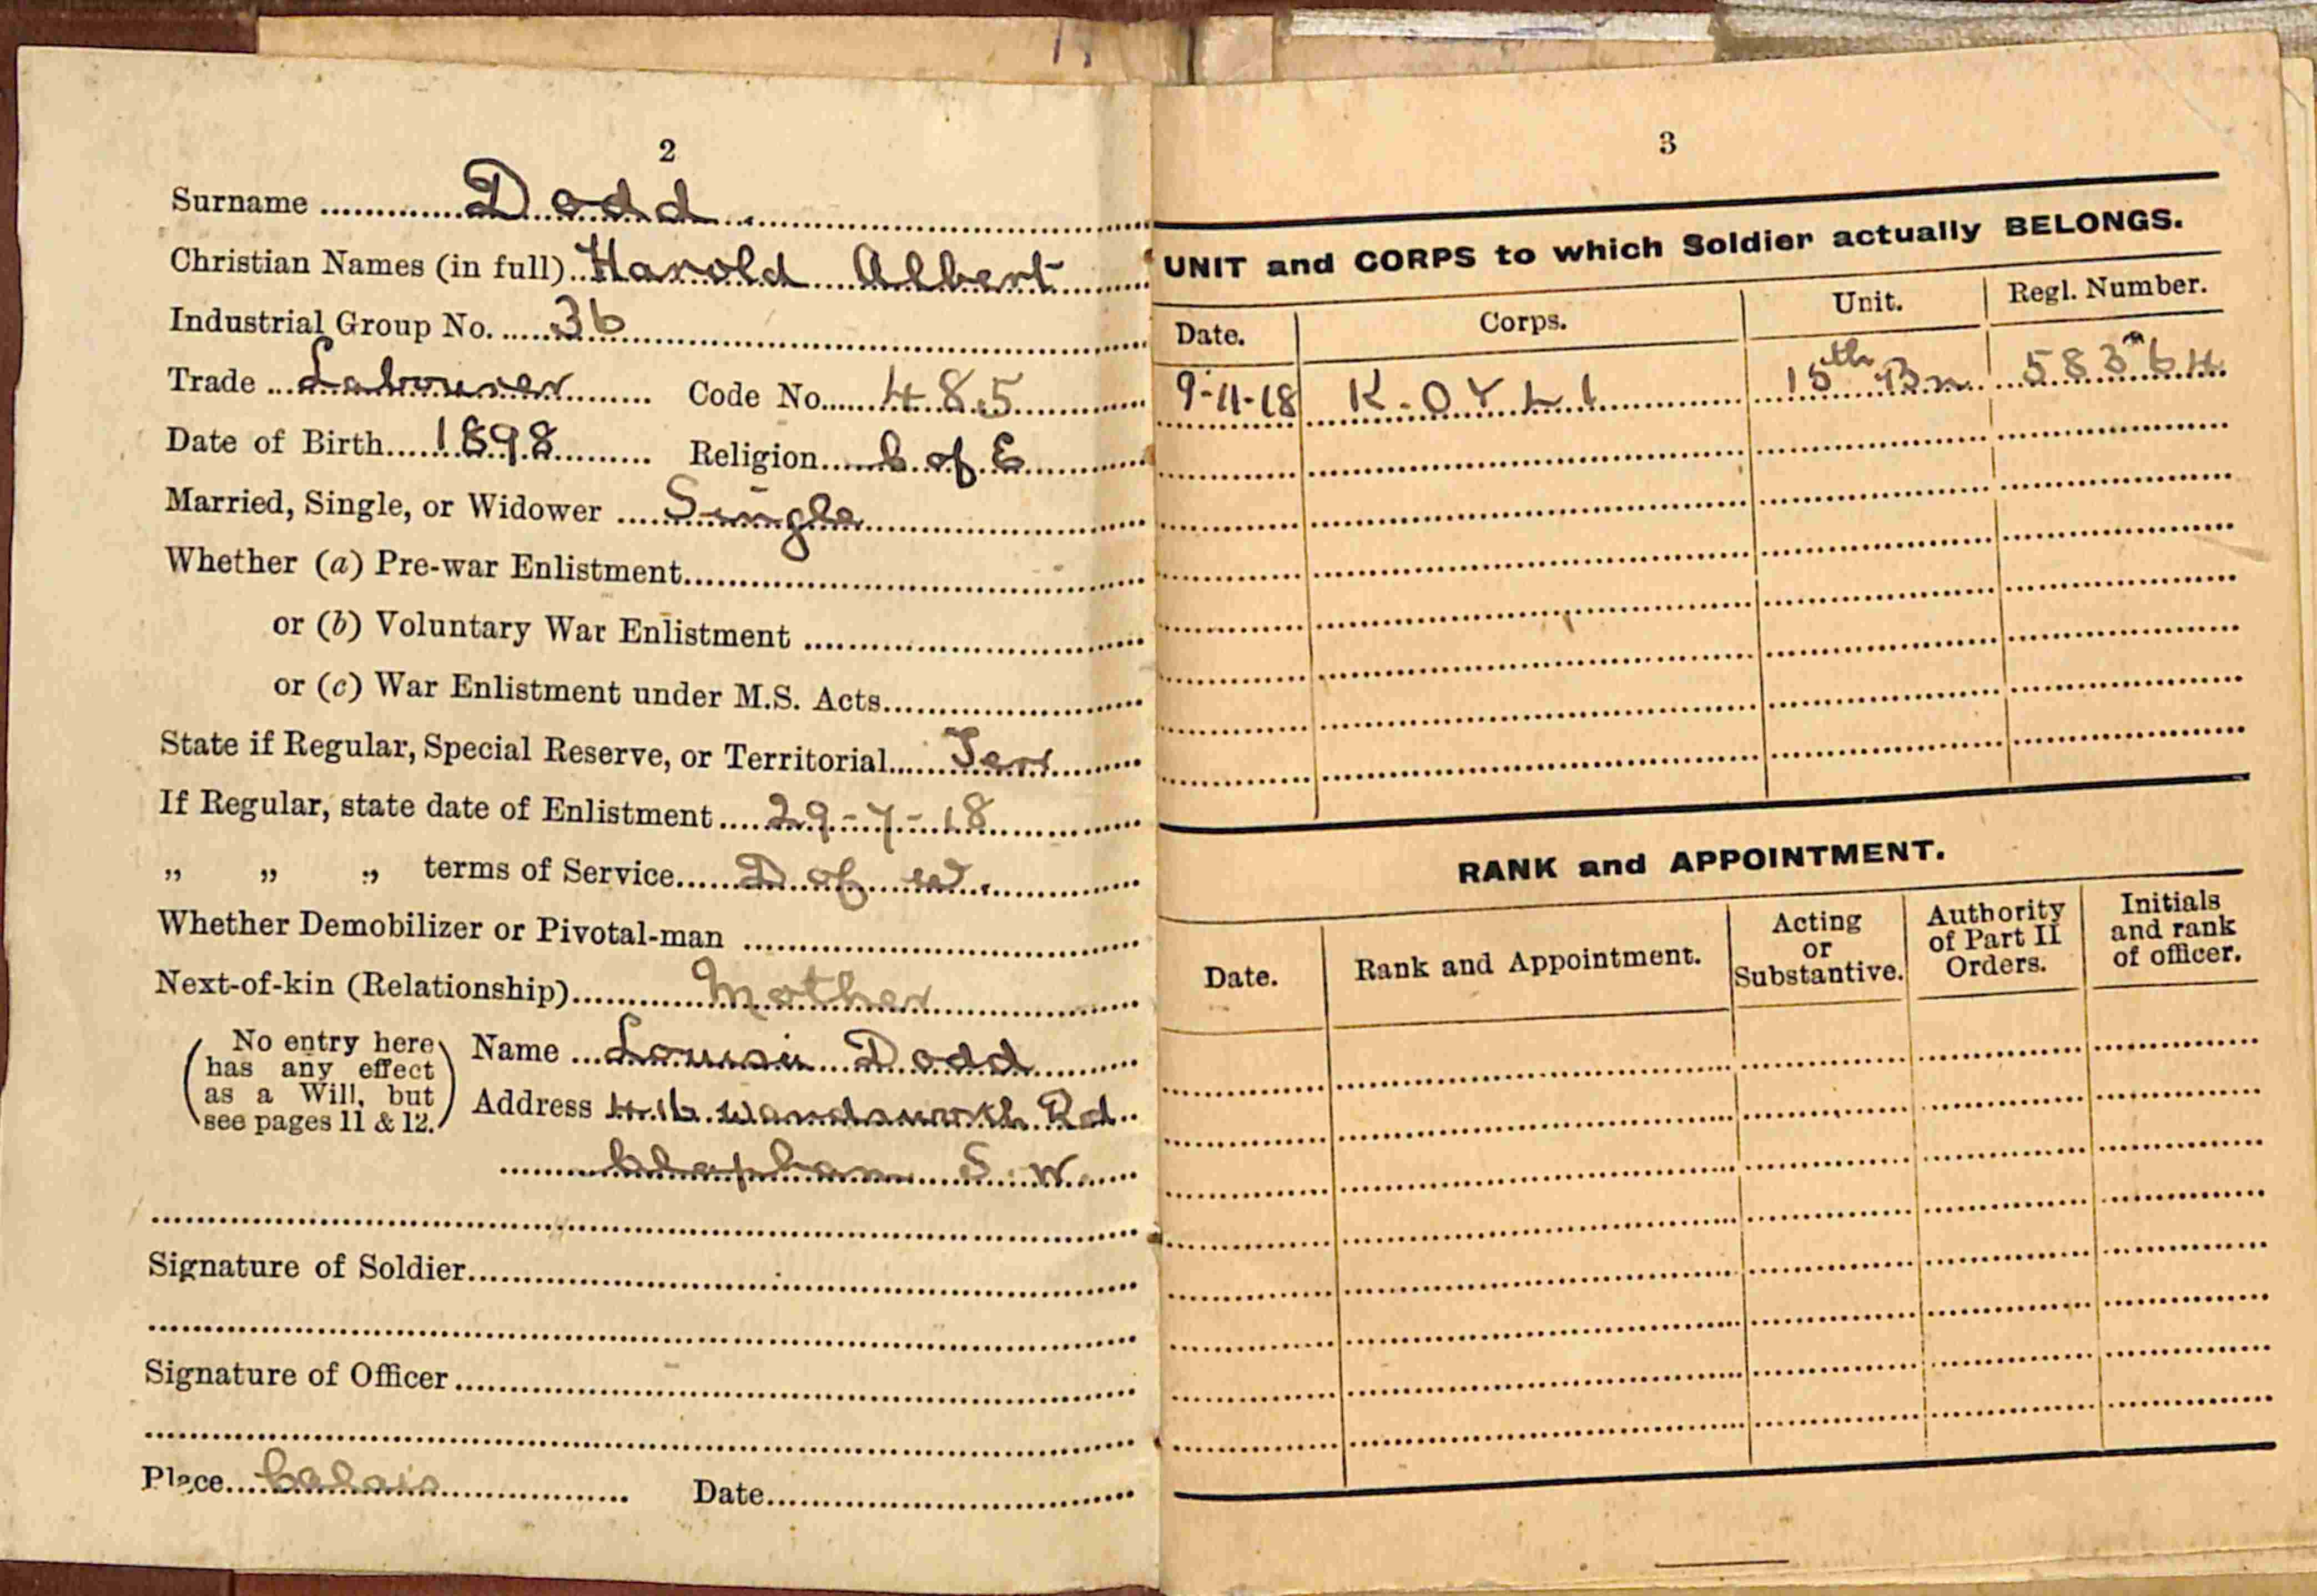 2
Surname Dodd
Christian Names (in full) Harold Albert
Industrial Group No. 36
Trade Labourer Code No. 485
Date of Birth 1898 Religion C of E
Married, Single, or Widower Single
Whether (a) Pre-war Enlistment
or (b) Voluntary War Enlistment
or (c) War Enlistment under M.S. Acts
State if Regular, Special Reserve, or Territorial Terr
If Regular, state date of Enlistment 29-7-18
„ „ „ terms of Service D of W.
Whether Demobilizer or Pivotal-man
Next-of-kin (Relationship) Mother
(No entry here has any effect as a Will, but see pages 11 & 12.)
Name Dodd
Address Wandsworth Rd
Clapham S.W.
Signature of Soldier
Signature of Officer
Place Calais Date
3
UNIT and CORPS to which Soldier actually BELONGS.
Date. Corps. Unit. Regl. Number.
9-11-18 K.OYLI 15th Bn 58364
RANK and APPOINTMENT.
Date. Rank and Appointment. Acting or Substantive. Authority of Part II Orders. Initials and rank of officer.